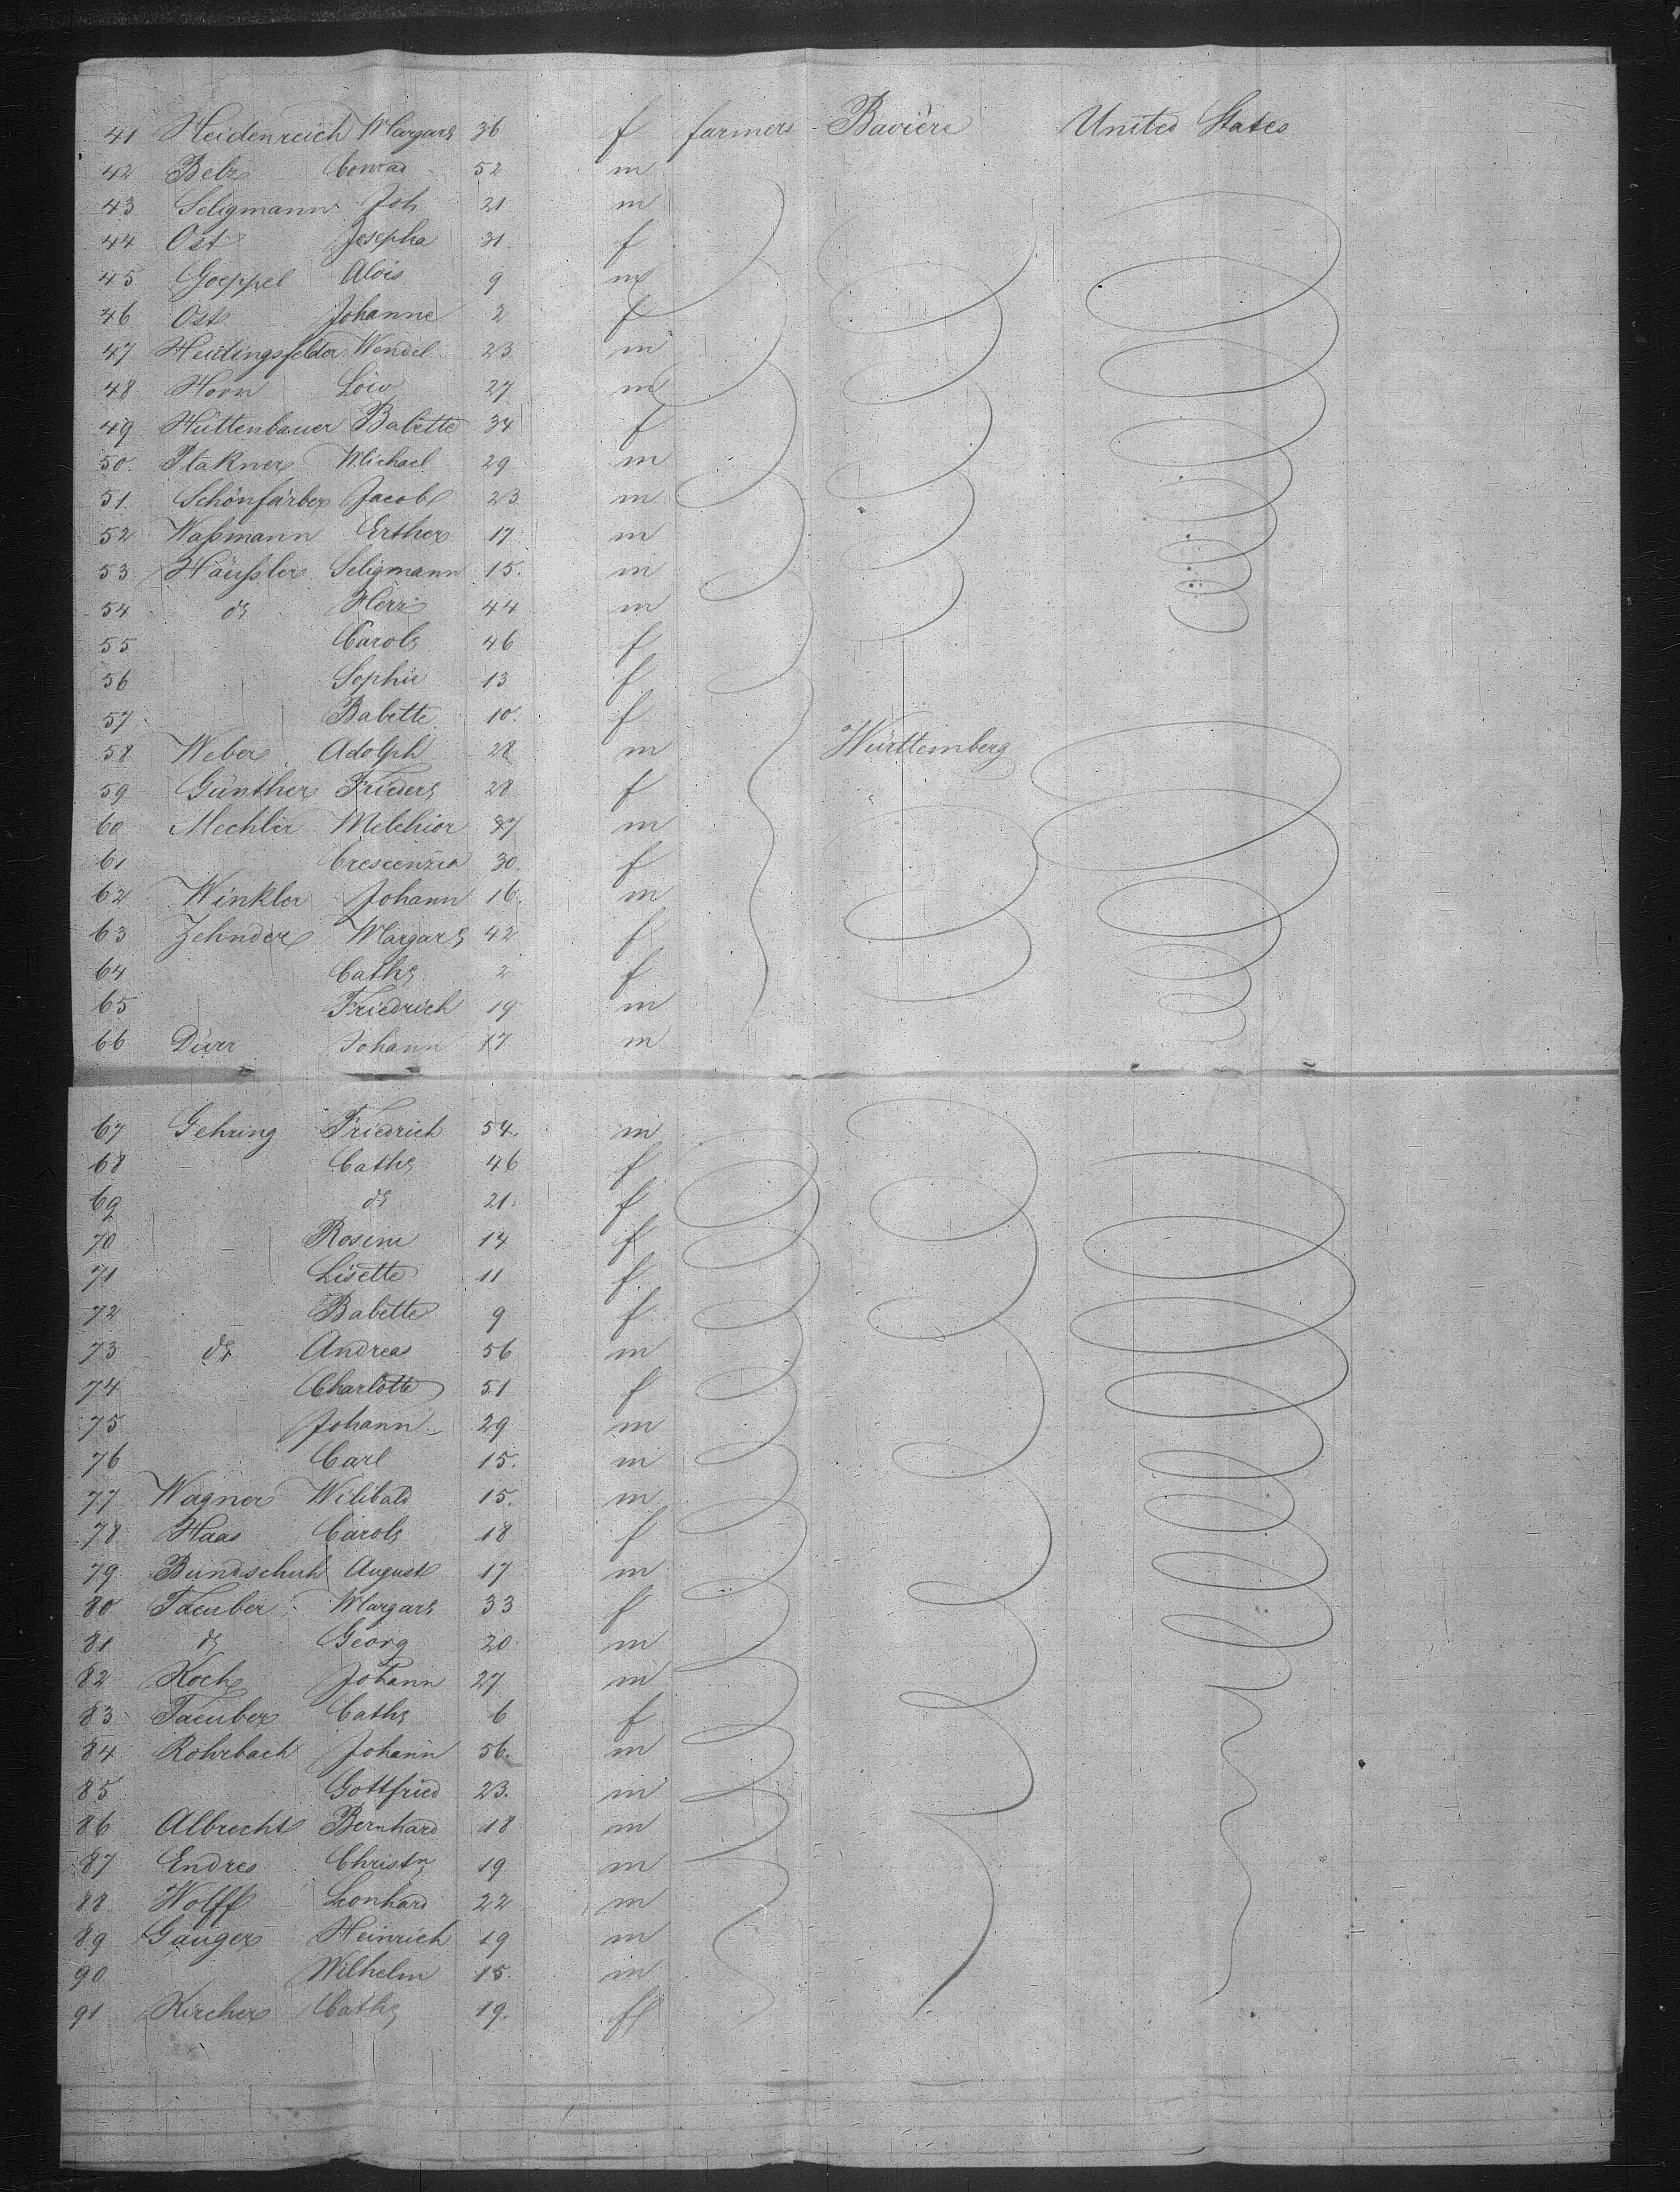 41 Heidenreich Margar. 36 f farmers Bavière United States
42 Belz Conrad 52 m
43 Seligmann Joh 21 m
44 Ost Josepha 31. f
45 Goeppel Alois 9 m
46 Ost Johanne 2 f
47 Heidingsfelder Wendel 23 m
48 Horn Löw 27 m
49 Hüttenbauer Babette 34 f
50. Plakner Michael 29 m
51 Schönfärber Jacob 23 m
52 Waßmann Esther 17 m
53 Häußler Seligmann 15. m
54 do Herz 44 m
55 Carol. 46 f
56 Sophie 13 f
57 Babette 10. f
58 Weber Adolph 28 m Württemberg
59 Günther Frieder. 28 f
60 Mechler Melchior 37 m
61 Crescenzia 30. f
62 Winkler Johann 16. m
63 Zehnder Margar. 42 f
64 Cath. 2 f
65 Friedrich 19 m
66 Dürr Johann 17 m
67 Gehring Friedrich 54. m
68 Cath. 46 f
69 do 21. f
70 Rosine 14 f
71 Lisette 11 f
72 Babette 9 f
73 do Andreas 56 m
74 Charlotte 51 f
75 Johann 29 m
76 Carl 15. m
77 Wagner Wilibald 15. m
78 Haas Carol. 18 f
79 Bundschuh August 17 m
80 Taeuber Margar. 33 f
81 do Georg 20 m
82 Koch Johann 27 m
83 Taeuber Cath. 6 f
84 Rohrbach Johann 56. m
85 Gottfried 23. m
86 Albrecht Bernhard 18 m
87 Endres Christn. 19 m
88 Wolff Leonhard 22 m
89 Gauger Heinrich 19 m
90 Wilhelm 15. m
91 Kircher Cath. 19. f